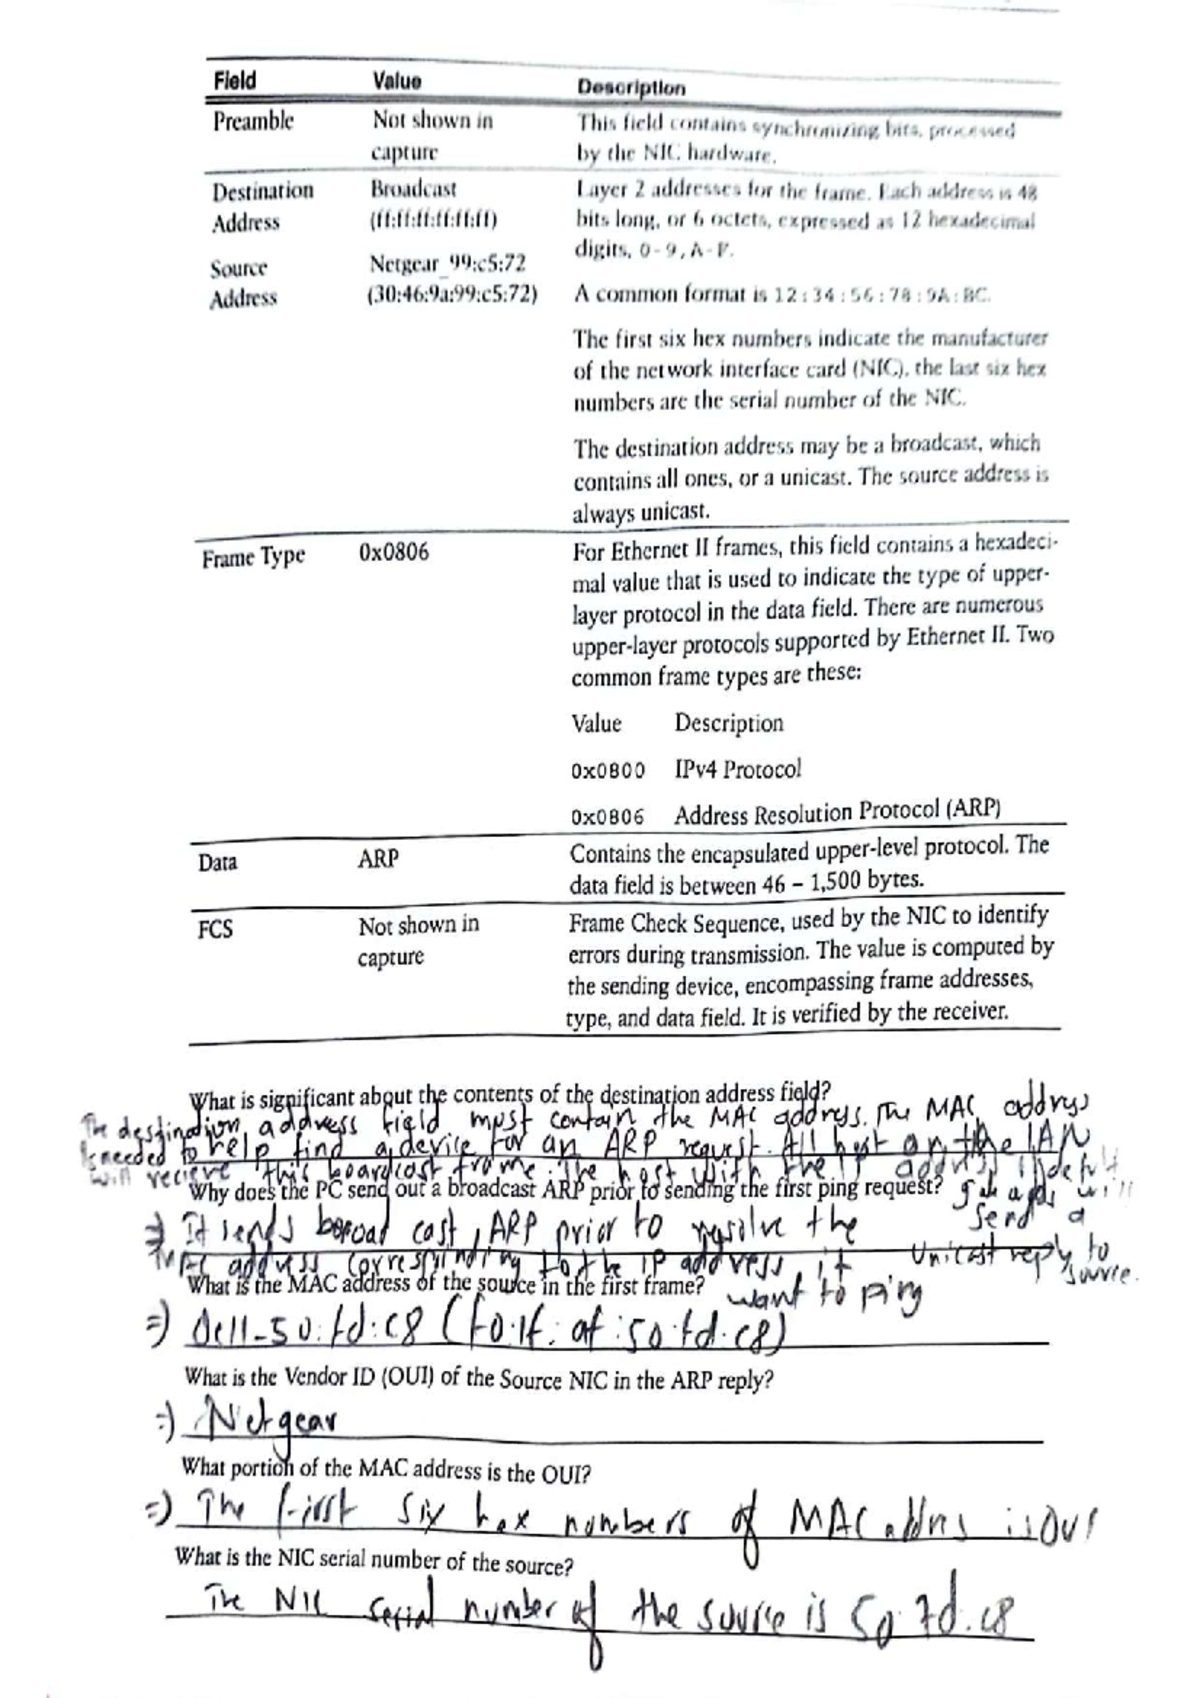 Field Value Description
Preamble Not shown in This field contains synchronizing bits, processed
capture by the NIC hardware.
Destination Broadcast Layer 2 addresses for the frame. Each address is 48
Address (ff:ff:ff:ff:ff:ff) bits long, or 6 octets, expressed as 12 hexadecimal
digits, 0-9, A-F.
Source Netgear_99:c5:72
Address (30:46:9a:99:c5:72) A common format is 12:34:56:78:9A:BC.
The first six hex numbers indicate the manufacturer
of the network interface card (NIC), the last six hex
numbers are the serial number of the NIC.
The destination address may be a broadcast, which
contains all ones, or a unicast. The source address is
always unicast.
Frame Type 0x0806 For Ethernet II frames, this field contains a hexadeci-
mal value that is used to indicate the type of upper-
layer protocol in the data field. There are numerous
upper-layer protocols supported by Ethernet II. Two
common frame types are these:
Value Description
0x0800 IPv4 Protocol
0x0806 Address Resolution Protocol (ARP)
Data ARP Contains the encapsulated upper-level protocol. The
data field is between 46 – 1,500 bytes.
FCS Not shown in Frame Check Sequence, used by the NIC to identify
capture errors during transmission. The value is computed by
the sending device, encompassing frame addresses,
type, and data field. It is verified by the receiver.
What is significant about the contents of the destination address field?
The destination address field must contain the MAC address. The MAC address
is needed to help find a device for an ARP request. All host on the LAN
will recieve this boardcost frame. The host with the IP address
Why does the PC send out a broadcast ARP prior to sending the first ping request?
will send a
=) It sends broad cast, ARP prior to resolve the
unicast reply to source.
MAC address corresponding to the IP address it
want to ping
What is the MAC address of the source in the first frame?
=) Dell-50:fd:c8 (f0:1f:af:50:fd:c8)
What is the Vendor ID (OUI) of the Source NIC in the ARP reply?
=) Netgear
What portion of the MAC address is the OUI?
=) The first six hex numbers of MAC addrss is OUI
What is the NIC serial number of the source?
The NIC serial number of the source is 50:7d:c8